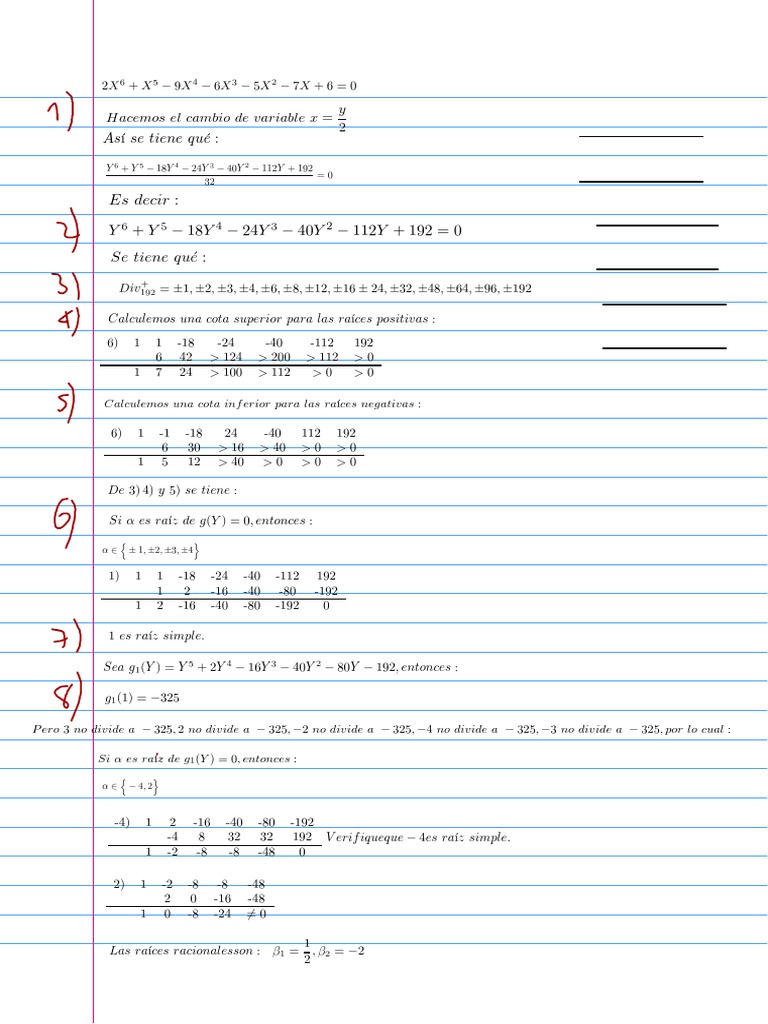 2X⁶ + X⁵ − 9X⁴ − 6X³ − 5X² − 7X + 6 = 0
1) Hacemos el cambio de variable x = y/2
Así se tiene qué :
(Y⁶ + Y⁵ − 18Y⁴ − 24Y³ − 40Y² − 112Y + 192)/32 = 0
Es decir :
2) Y⁶ + Y⁵ − 18Y⁴ − 24Y³ − 40Y² − 112Y + 192 = 0
Se tiene qué :
3) Div⁺₁₉₂ = ±1, ±2, ±3, ±4, ±6, ±8, ±12, ±16 ± 24, ±32, ±48, ±64, ±96, ±192
4) Calculemos una cota superior para las raíces positivas :
6) 1 1 -18 -24 -40 -112 192
6 42 > 124 > 200 > 112 > 0
1 7 24 > 100 > 112 > 0 > 0
5) Calculemos una cota inferior para las raíces negativas :
6) 1 -1 -18 24 -40 112 192
6 30 > 16 > 40 > 0 > 0
1 5 12 > 40 > 0 > 0 > 0
De 3) 4) y 5) se tiene :
6) Si α es raíz de g(Y) = 0, entonces :
α ∈ { ± 1, ±2, ±3, ±4}
1) 1 1 -18 -24 -40 -112 192
1 2 -16 -40 -80 -192
1 2 -16 -40 -80 -192 0
7) 1 es raíz simple.
Sea g₁(Y) = Y⁵ + 2Y⁴ − 16Y³ − 40Y² − 80Y − 192, entonces :
8) g₁(1) = −325
Pero 3 no divide a − 325, 2 no divide a − 325, −2 no divide a − 325, −4 no divide a − 325, −3 no divide a − 325, por lo cual :
Si α es raíz de g₁(Y) = 0, entonces :
α ∈ { − 4, 2}
-4) 1 2 -16 -40 -80 -192
-4 8 32 32 192 Verifiqueque − 4es raíz simple.
1 -2 -8 -8 -48 0
2) 1 -2 -8 -8 -48
2 0 -16 -48
1 0 -8 -24 ≠ 0
Las raíces racionalesson : β₁ = 1/2, β₂ = −2